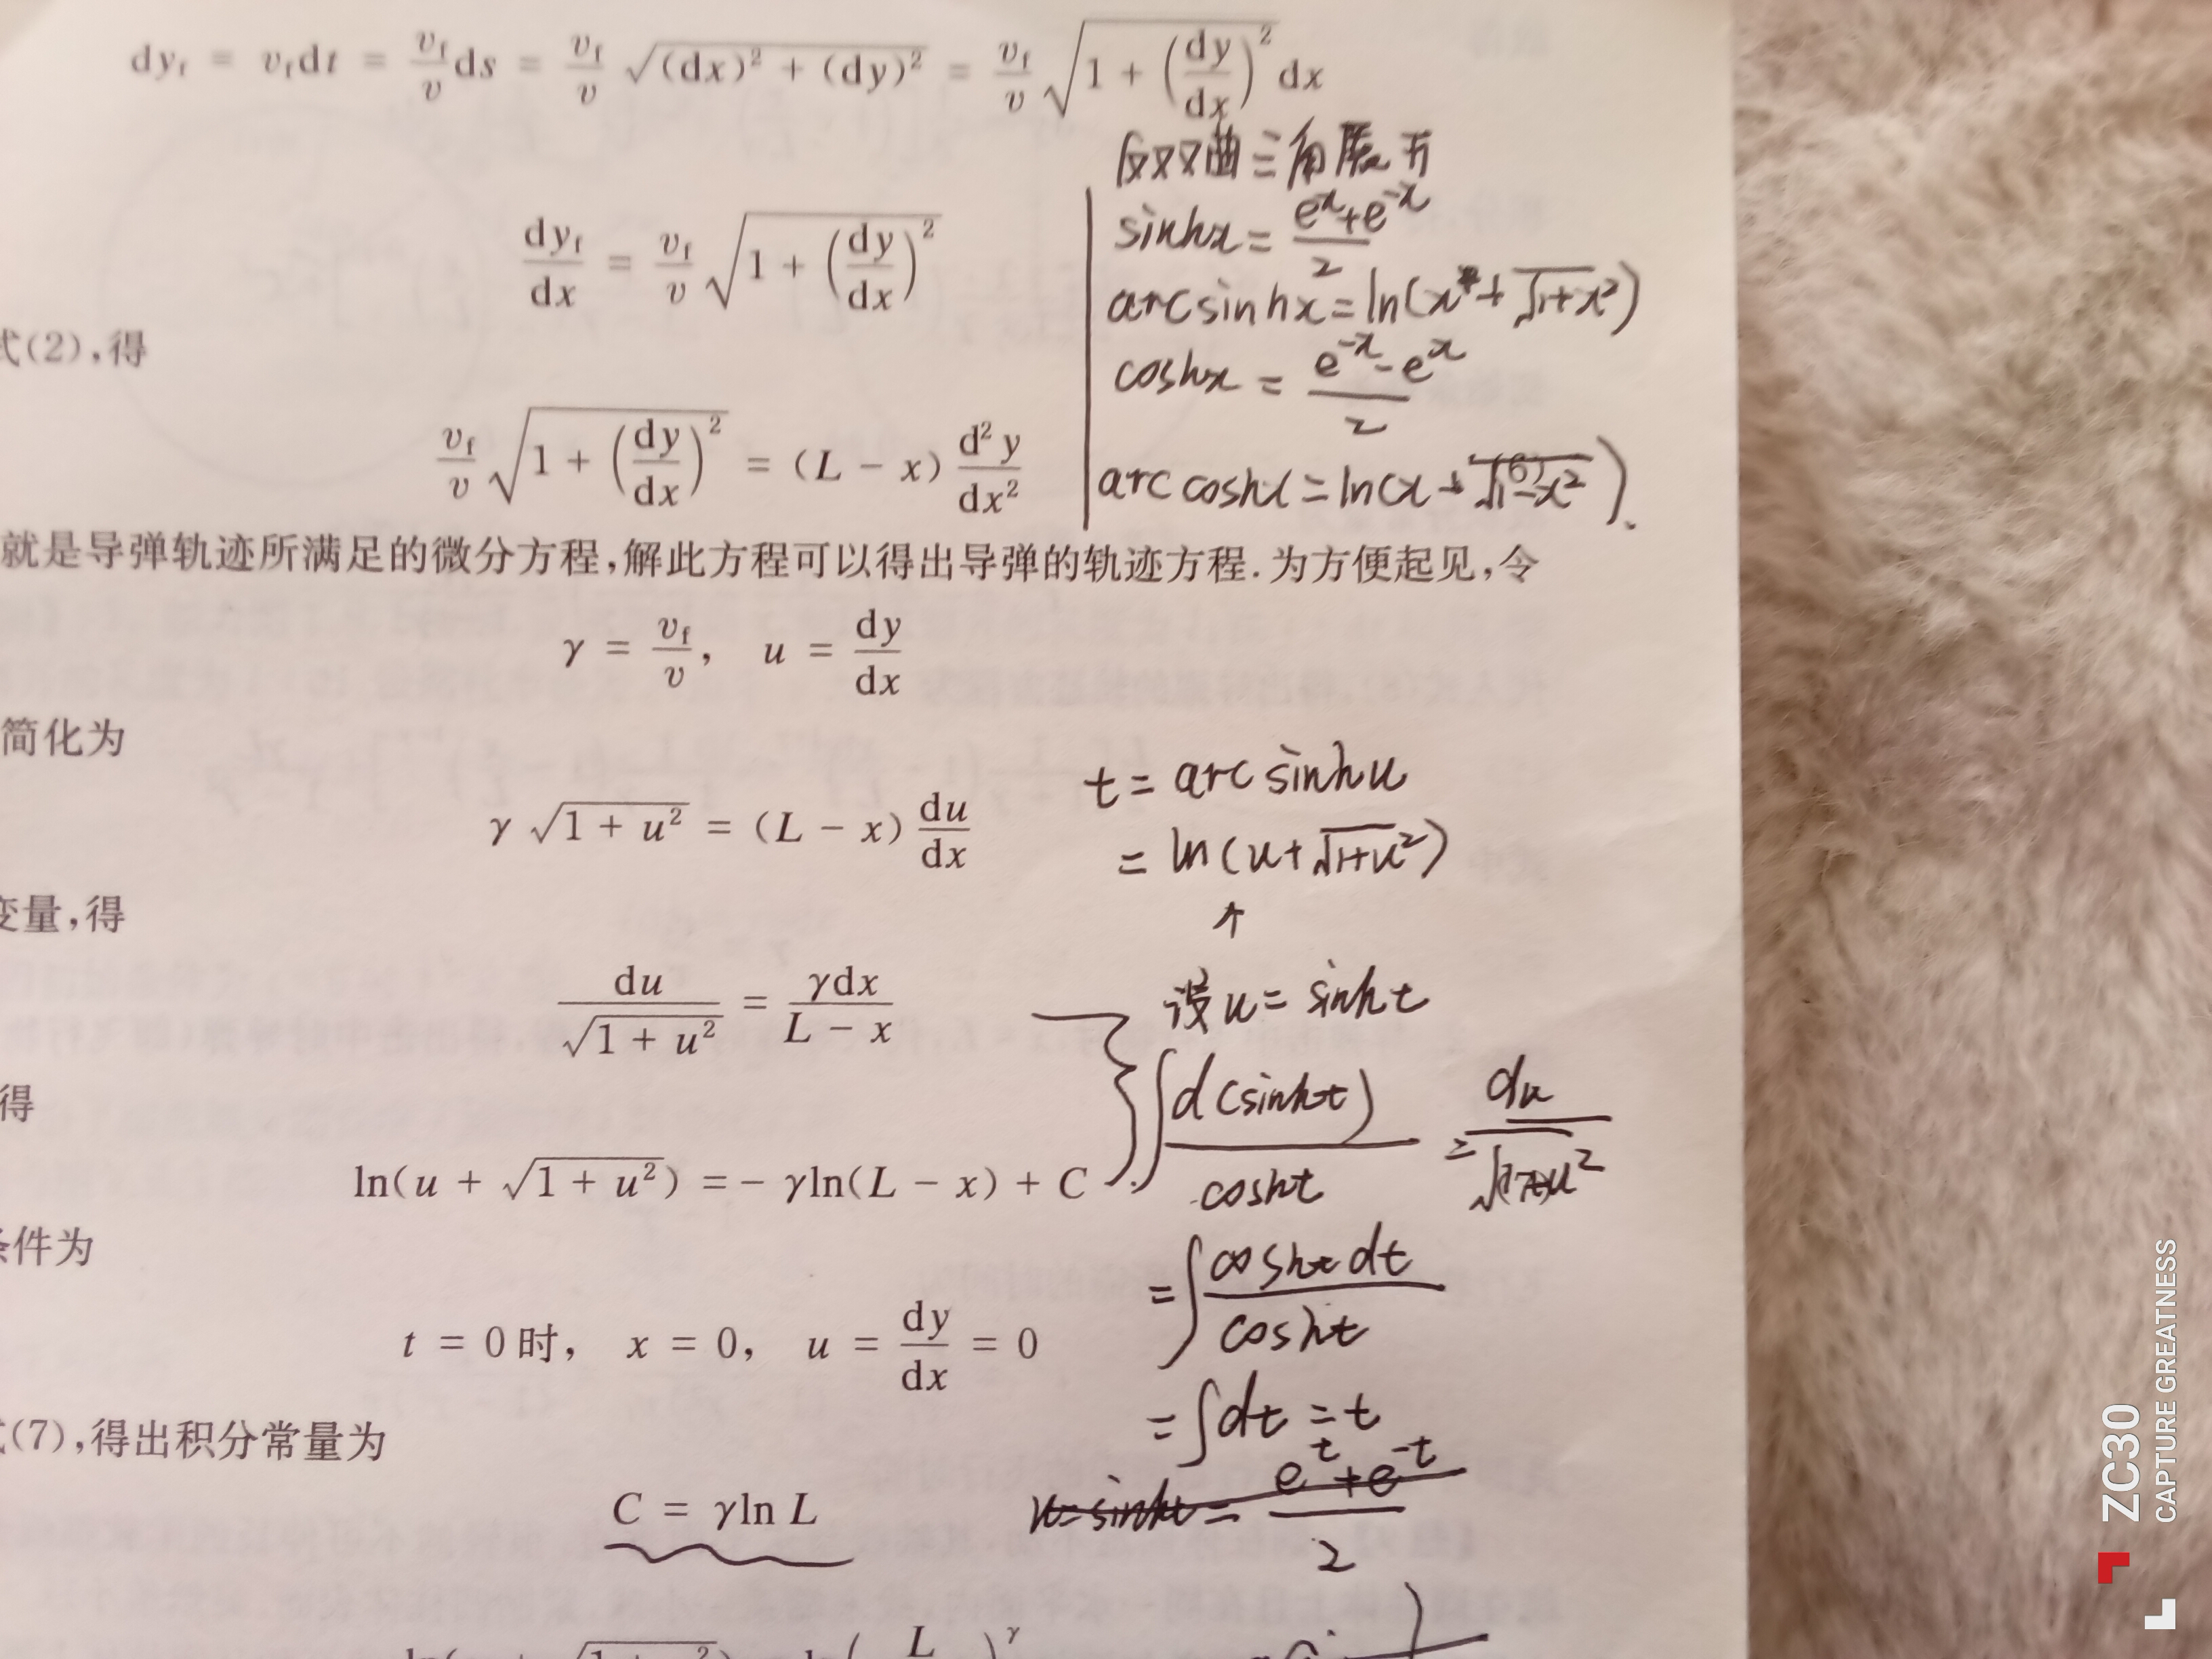 dy_f = v_f dt = \frac{v_f}{v} ds = \frac{v_f}{v} \sqrt{(dx)^2 + (dy)^2} = \frac{v_f}{v} \sqrt{1 + \left(\frac{dy}{dx}\right)^2} dx
反双曲三角展开
\frac{dy_f}{dx} = \frac{v_f}{v} \sqrt{1 + \left(\frac{dy}{dx}\right)^2}
sinhx = \frac{e^x + e^{-x}}{2}
arcsinhx = ln(x + \sqrt{1+x^2})
式(2),得
coshx = \frac{e^{-x} - e^x}{2}
\frac{v_f}{v} \sqrt{1 + \left(\frac{dy}{dx}\right)^2} = (L - x) \frac{d^2 y}{dx^2}
(6)
arccoshx = ln(x + \sqrt{1-x^2}).
就是导弹轨迹所满足的微分方程,解此方程可以得出导弹的轨迹方程.为方便起见,令
γ = \frac{v_f}{v}, u = \frac{dy}{dx}
简化为
γ \sqrt{1 + u^2} = (L - x) \frac{du}{dx}
t = arcsinhu
= ln(u + \sqrt{1+u^2})
↑
变量,得
\frac{du}{\sqrt{1 + u^2}} = \frac{γdx}{L - x}
设u = sinht
得
\int \frac{d(sinht)}{cosht} = \frac{du}{\sqrt{1+u^2}}
ln(u + \sqrt{1 + u^2}) = - γln(L - x) + C
= \int \frac{cosht dt}{cosht}
条件为
t = 0时, x = 0, u = \frac{dy}{dx} = 0
= \int dt = t
式(7),得出积分常量为
C = γln L
u = sinht = \frac{e^t + e^{-t}}{2}
ZC30
CAPTURE GREATNESS